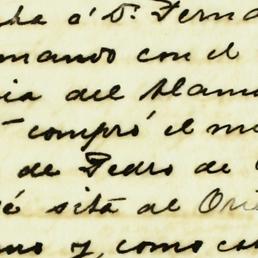 ha á Dn. Ferna
mando con el
ia del Alam
compró el m
de Pedro de
é sitá al Ori
no y, como es